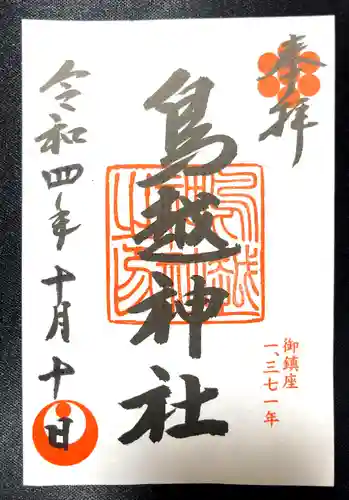 奉拝
鳥越神社
御鎮座
一、三七一年
令和四年十月十日